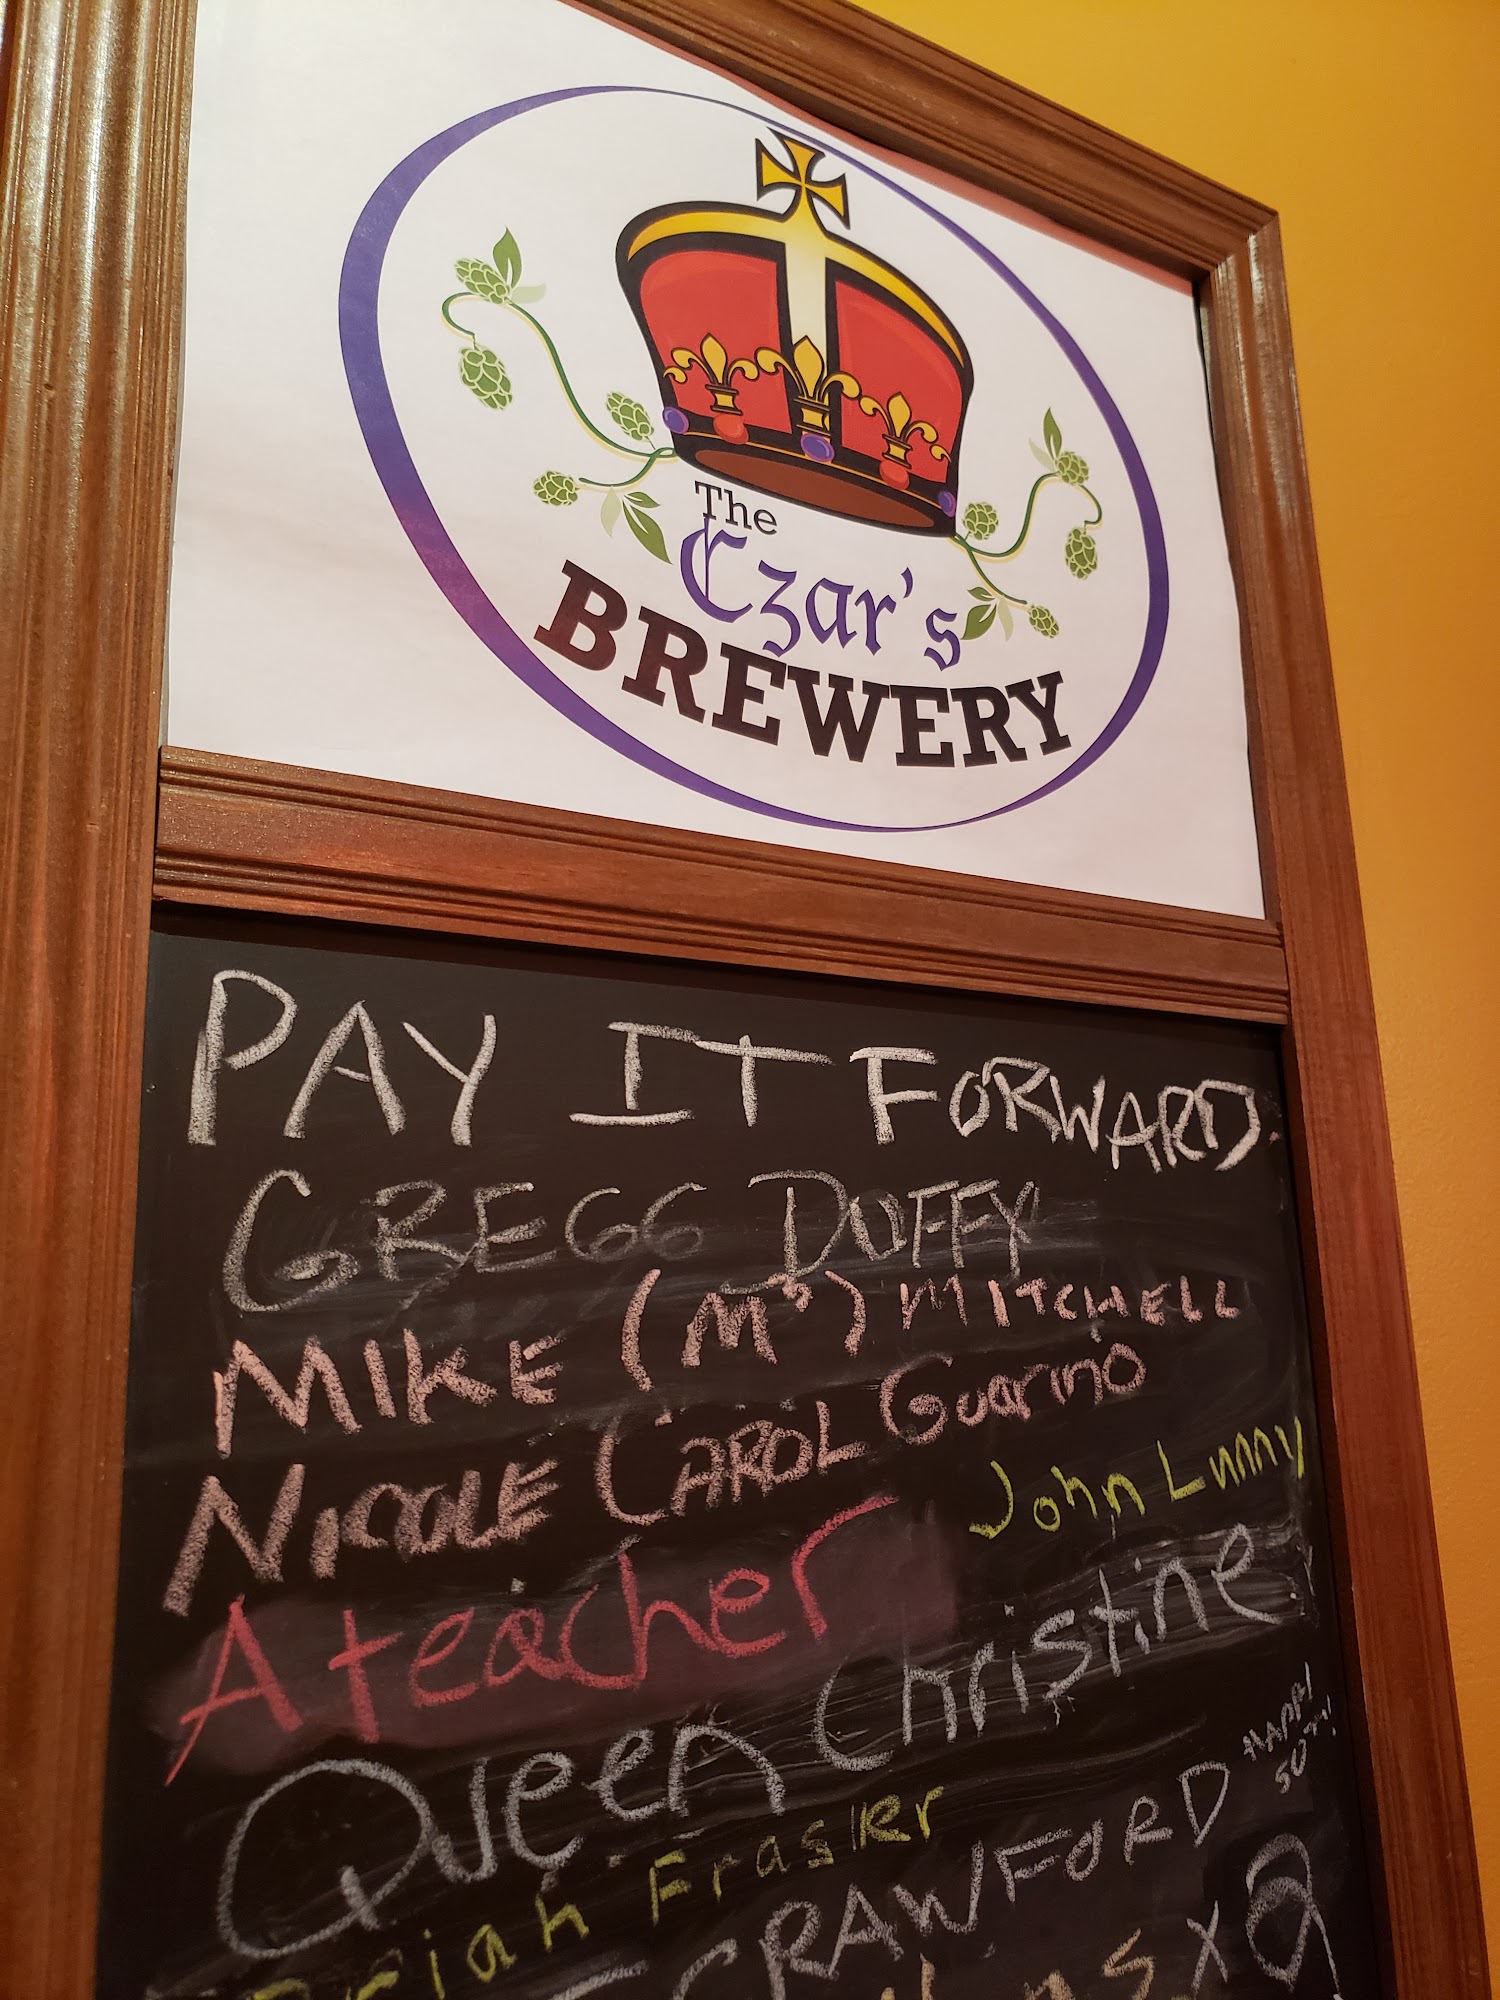 The
Czar's
BREWERY
PAY IT FORWARD
GREGG DUFFY
MIKE (M³) MITCHELL
NICOLE CAROL Guarino
John Lunny
A teacher
Queen Christine
HAPPY
50TH!
Frasier
CRAWFORD
x2